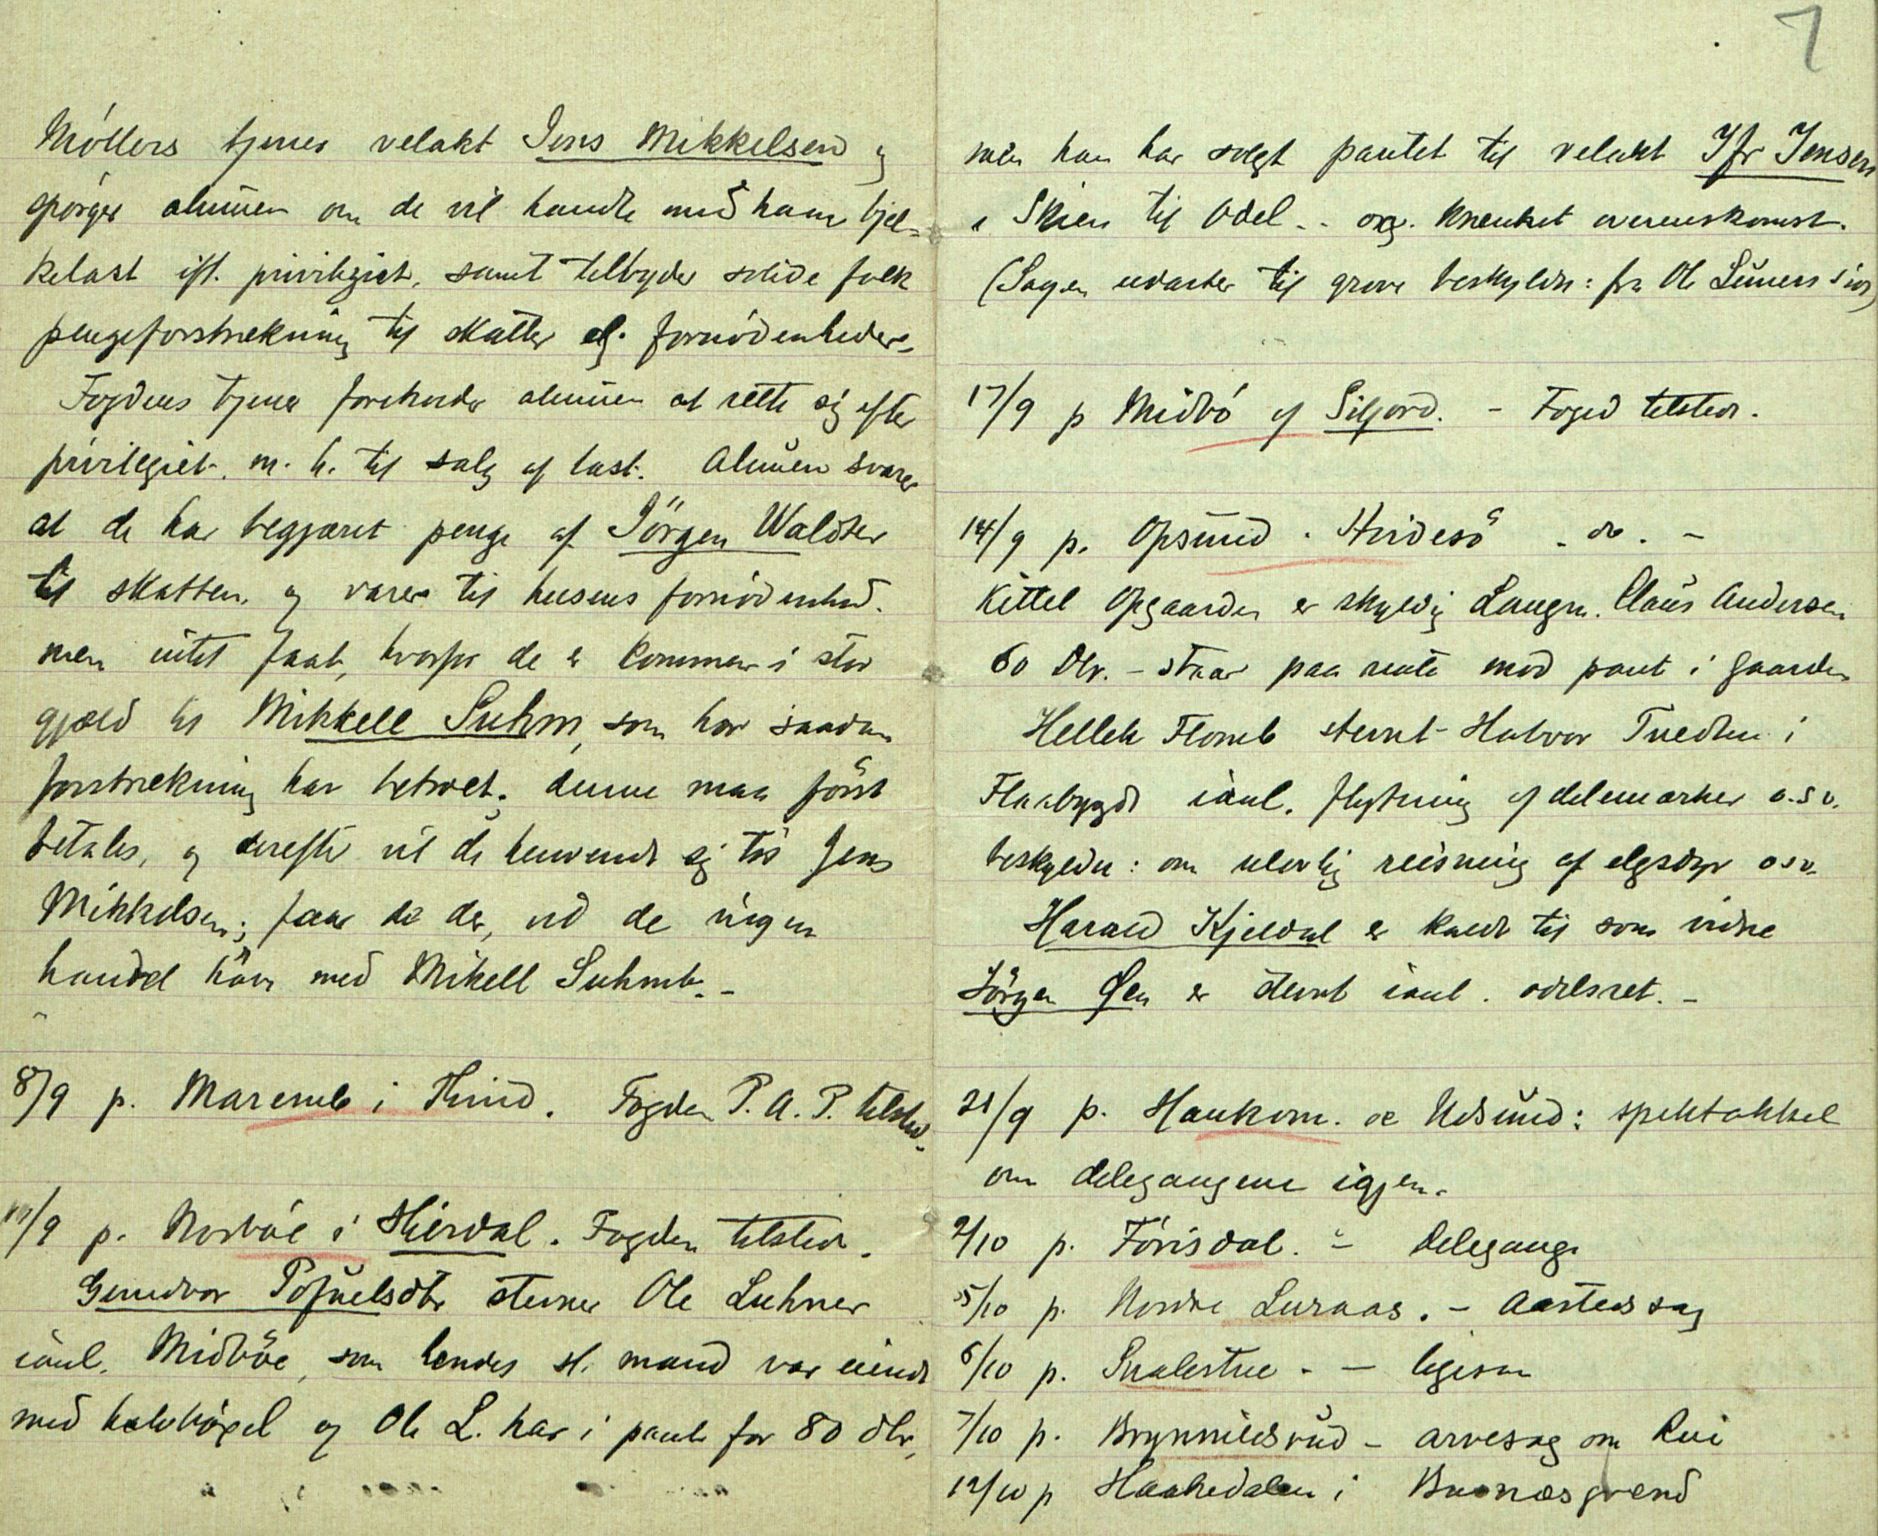 Møllers tjener velakt Jens Mikkelsen og
spörger almuen om de vil handle med ham bjel-
kelast ift. privilegiet, samt tilbyder solide folk
pengeforstrekning til skatter og fornödenheder.
Fogdens tjener foreholder almuen at rette sig efter
privilegiet m. h. til salg af last. Almuen svarer
at de har begjæret penge af Jörgen Waldter
til skatten og varer til husens fornödenhed.
men intet faat, hvorfor de er kommen i stor
gjæld til Mikkell Suhm, som har saadan
forstrekning har betroet. denne maa först
betales, og derefter vil de henvende sig til Jens
Mikkelsen; faar de der, vil de ingen
handel have med Mikell Suhmb. -
8/9 p. Maremb i Thind. Fogden P. A. P. tilsted.
p. Norböe i Hierdal. Fogden tilsted.
Gundvor stevner Ole Luhner
ianl. Midböe, som hendes sl. mand var eiende
med halvhögel og Ole L. har i pant for 80 dlr,
7
men han har solgt pantet til velakt Ifr Jensen
i Skien til Odel - og. Krenket overenskomst.
(Sagen udarter til grove beskyldn: fra Ole side)
17/9 p Midbö af Siljord. - Foged tilsted.
14/9 p. Opsund. Hvidesö - do. -
Kittel Opgaarden er skyldig Laugm. Claus Andersen
60 Dlr. - staar paa rente mod pant i gaarden
Hellek Flomb stevnt Halvor Tvedten i
Flaabygd ianl. flytning af delemærker o.s.v.
beskyldn: om ulovlig reisning af elgsdyr osv.
Harald Kjeldal er kaldt til som vidne
Jörgen Øen er stevnt ianl. odelsret. -
21/9 p. Haukom. Udsund: spektakkel
om delegangene igjen.
2/10 p. Förisdal. - Delegange
5/10 p. Nordre Luraas. - Aastedssag
6/10 p. - ligesaa
7/10 p. Brynnildsrud - arvesag om Rui
12/10 p Haakedalen i Bunæsgrend